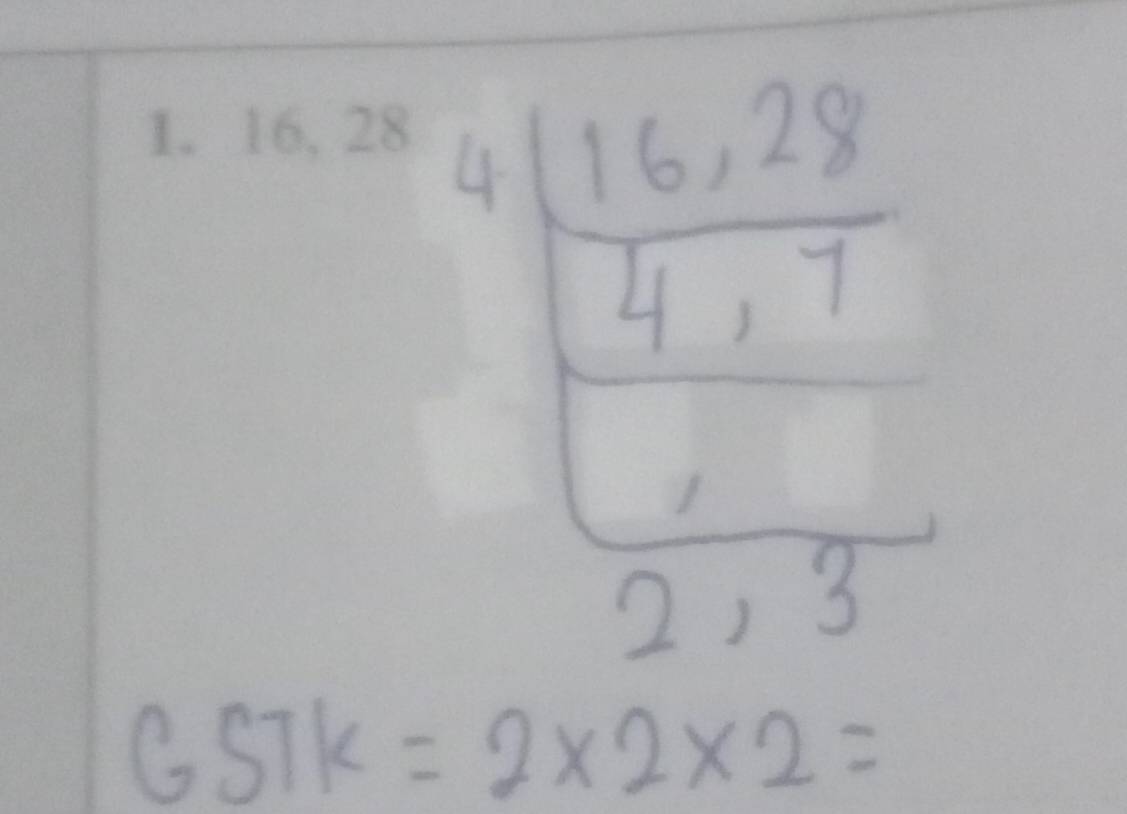 1. 16, 28
4 16, 28
4, 7
,
2, 3
GSTK = 2×2×2=